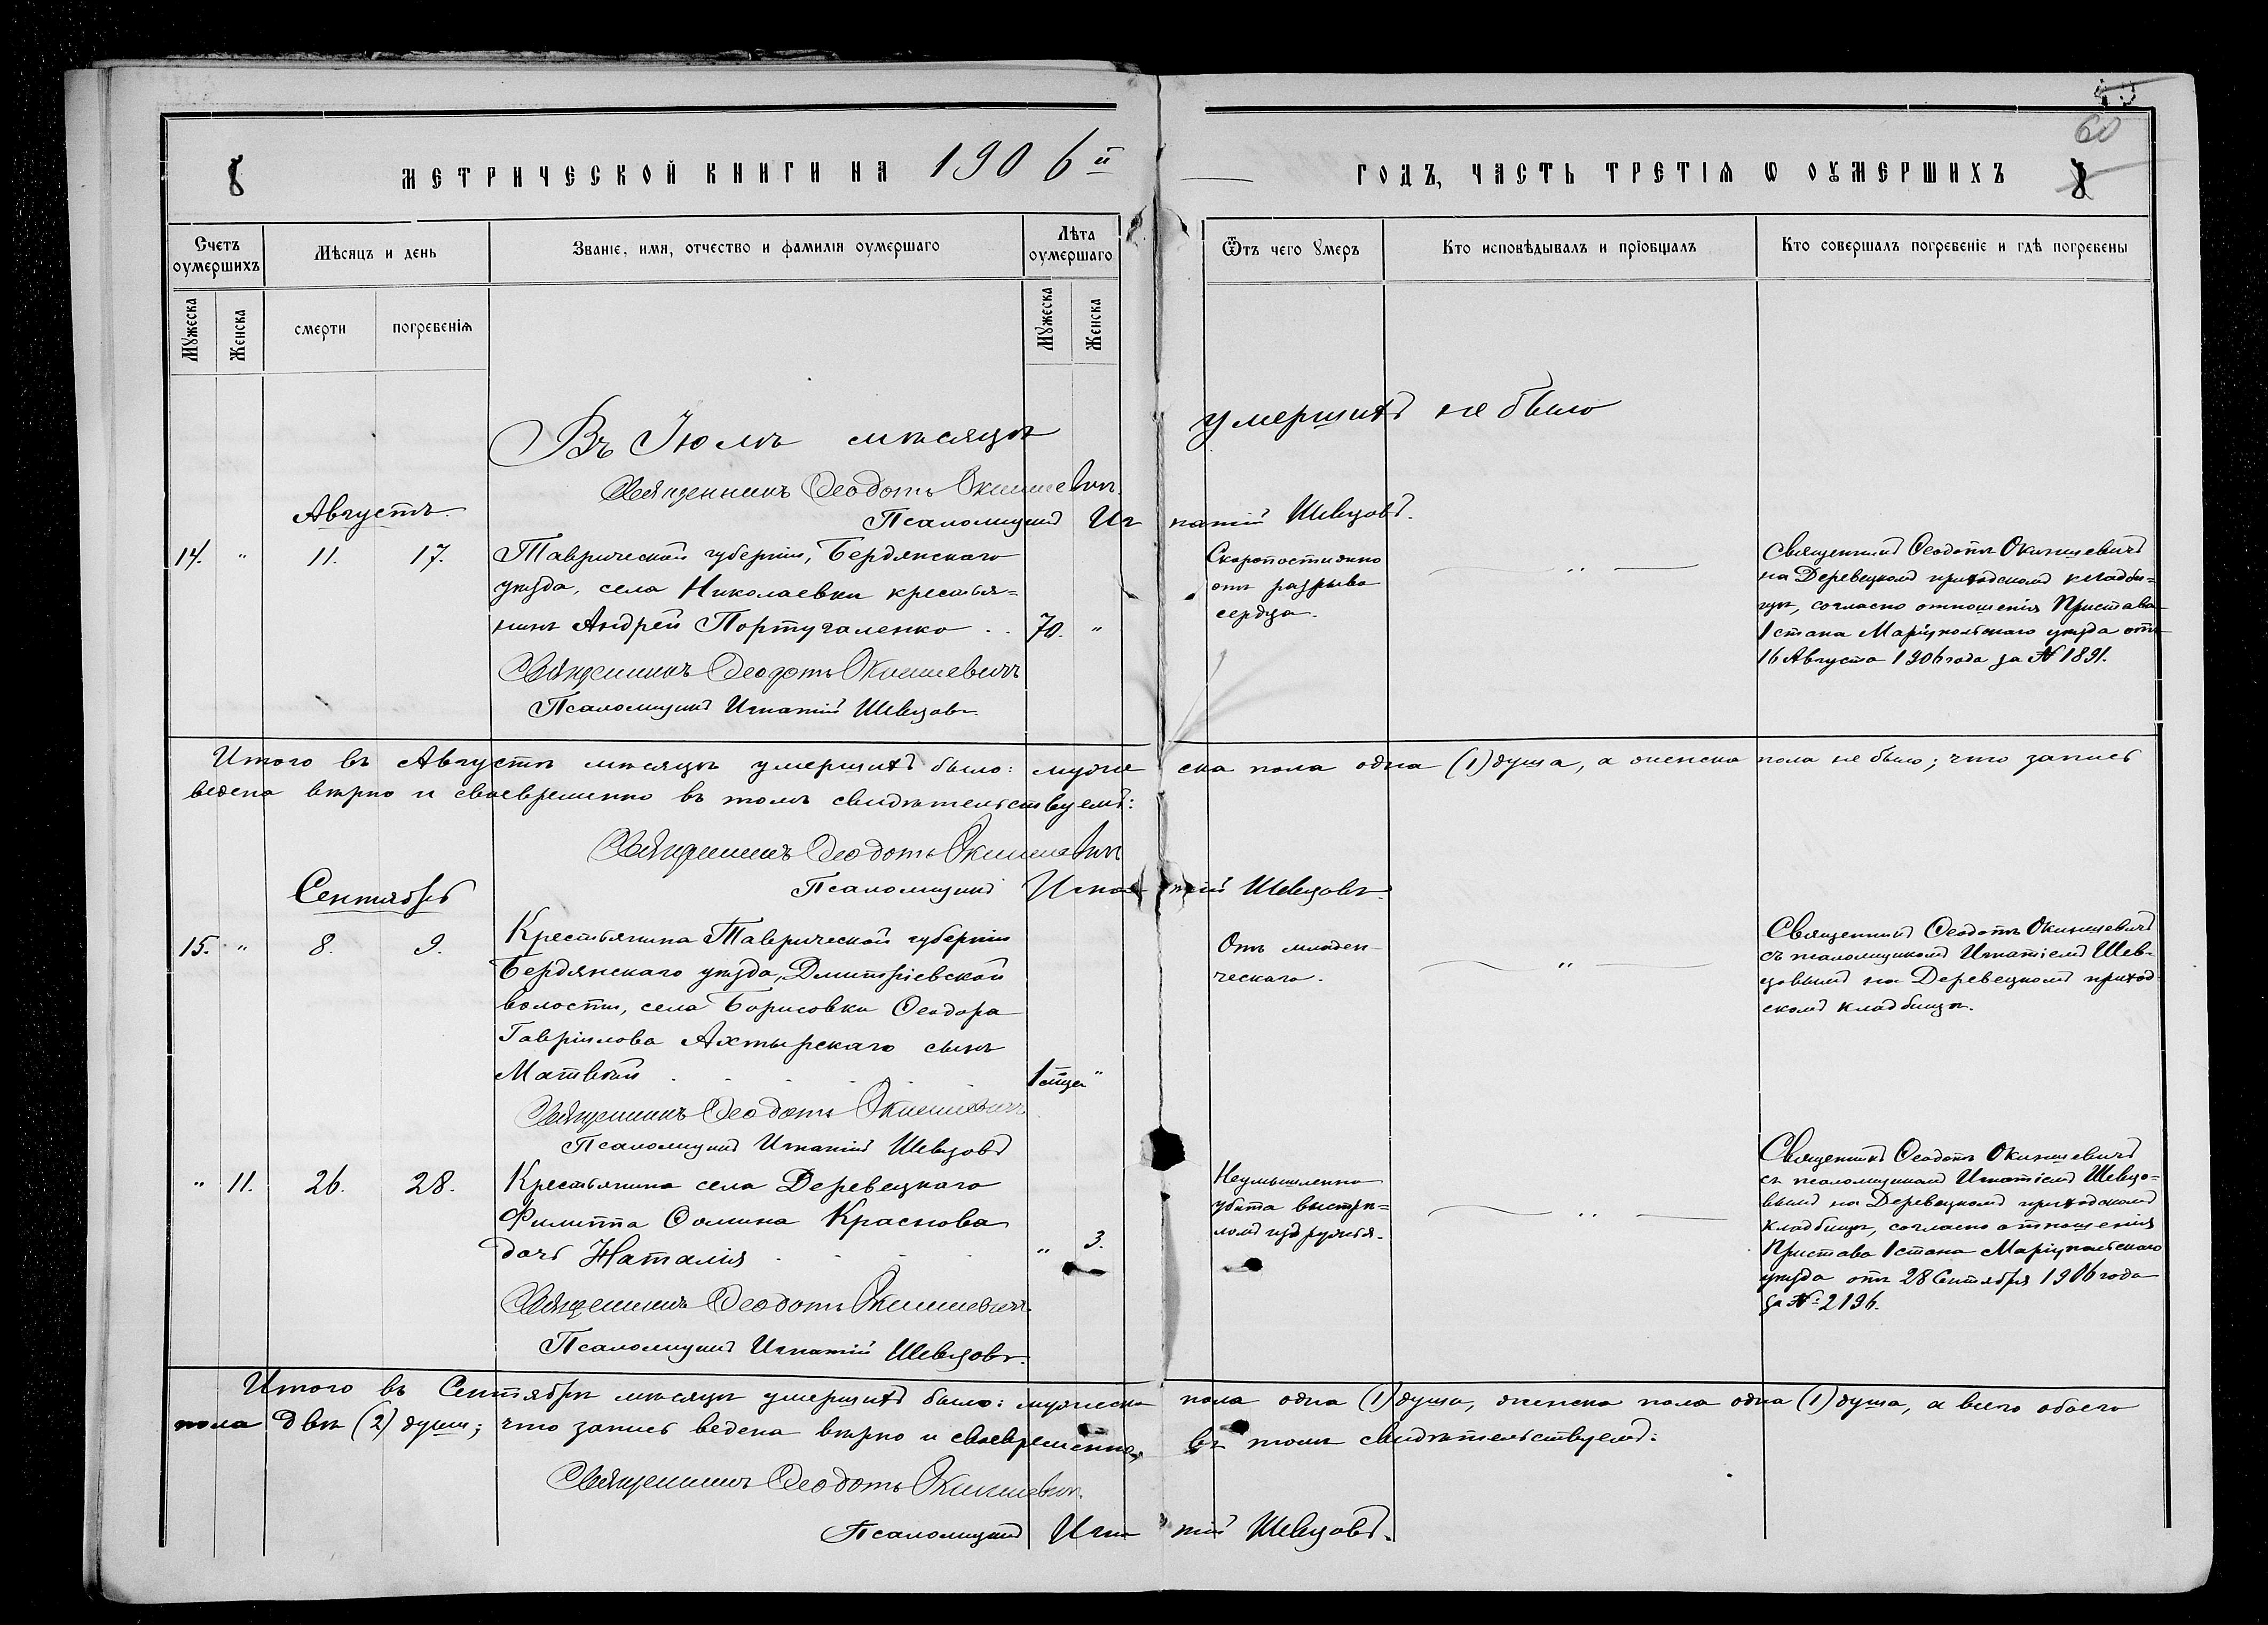 45
60
8 МЕТРИЧЕСКОЙ КНИГИ НА 1906й ГОДЪ, ЧАСТЬ ТРЕТІѦ Ѡ ОУМЕРШИХЪ 8
Счетъ оумершихъ
Мѣсяцъ и день
Званіе, имя, отчество и фамилія оумершаго
Лѣта оумершаго
Ѿтъ чего умеръ
Кто исповѣдывалъ и пріобщалъ
Кто совершалъ погребеніе и гдѣ погребены
Мужеска
Женска
смерти
погребенія
Мужеска
Женска
Въ Іюлѣ мѣсяцѣ умершихъ не было
Священникъ Ѳеодотъ Окиншевичъ.
Псаломщикъ Игнатій Шевцовъ.
Августъ.
14. " 11. 17.
Таврической губерніи, Бердянскаго
уѣзда, села Николаевки крестья=
нинъ Андрей Португаленко . . 70. "
Священникъ Ѳеодотъ Окиншевичъ
Псаломщикъ Игнатій Шевцовъ.
Скоропостижно
отъ разрыва
сердца.
"
Священникъ Ѳеодотъ Окиншевичъ
на Деревецкомъ приходскомъ кладби=
щѣ, согласно отношенія Пристава
1 стана Маріупольскаго уѣзда отъ
16 Августа 1906 года за № 1891.
Итого въ Августѣ мѣсяцѣ умершихъ было: мужеска пола одна (1) душа, а женска пола не было; что запись
ведена вѣрно и своевременно въ томъ свидѣтельствуемъ:
Священникъ Ѳеодотъ Окиншевичъ
Псаломщикъ Игнатій Шевцовъ.
Сентябрь
15. " 8. 9.
Крестьянина Таврической губерніи
Бердянскаго уѣзда, Дмитріевской
волости, села Борисовки Ѳеодора
Гавріилова Ахтырскаго сынъ
Матвѣй . . . . . 1 мѣся "
Священникъ Ѳеодотъ Окиншевичъ
Псаломщикъ Игнатій Шевцовъ
Отъ младен-
ческаго.
"
Священникъ Ѳеодотъ Окиншевичъ
съ псаломщикомъ Игнатіемъ Шев-
цовымъ на Деревецкомъ приход-
скомъ кладбищѣ.
" 11. 26. 28.
Крестьянина села Деревецкаго
Филиппа Ѳомина Краснова
дочь Наталія . . . . " 3.
Священникъ Ѳеодотъ Окиншевичъ.
Псаломщикъ Игнатій Шевцовъ.
Неумышленно
убита выстрѣ=
ломъ изъ ружья.
"
Священникъ Ѳеодотъ Окиншевичъ
съ псаломщикомъ Игнатіемъ Шевцо=
вымъ на Деревецкомъ приходскомъ
кладбищѣ, согласно отношенія
Пристава 1 стана Маріупольскаго
уѣзда отъ 28 Сентября 1906 года
за № 2196.
Итого въ Сентябрѣ мѣсяцѣ умершихъ было: мужеска пола одна (1) душа, женска пола одна (1) душа, а всего обоего
пола двѣ (2) души; что запись ведена вѣрно и своевременно, въ томъ свидѣтельствуемъ:
Священникъ Ѳеодотъ Окиншевичъ.
Псаломщикъ Игнатій Шевцовъ.